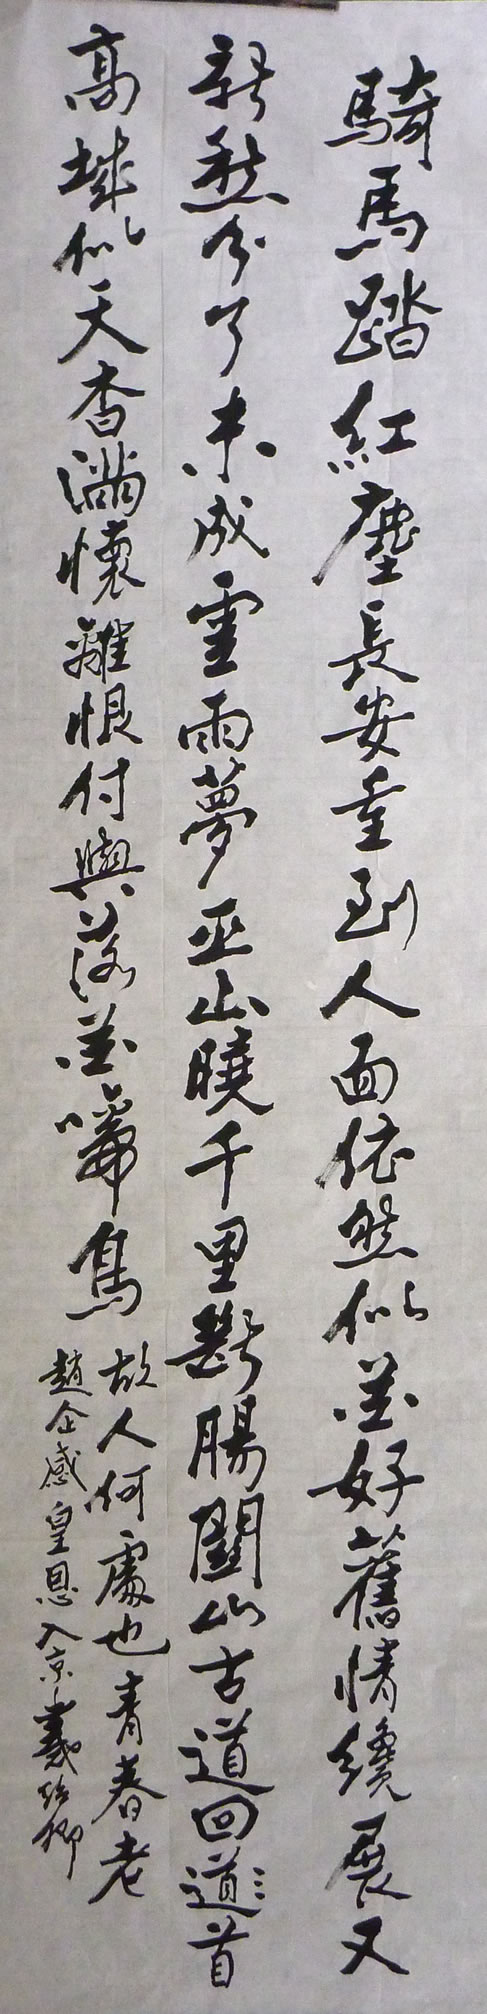 騎馬踏紅塵長安重到人面依然似花好舊情纔展又
新愁分了未成雲雨夢巫山曉千里斷腸關山古道回道首
高城似天杳滿懷離恨付與落花啼鳥
故人何處也青春老
趙企感皇恩入京義